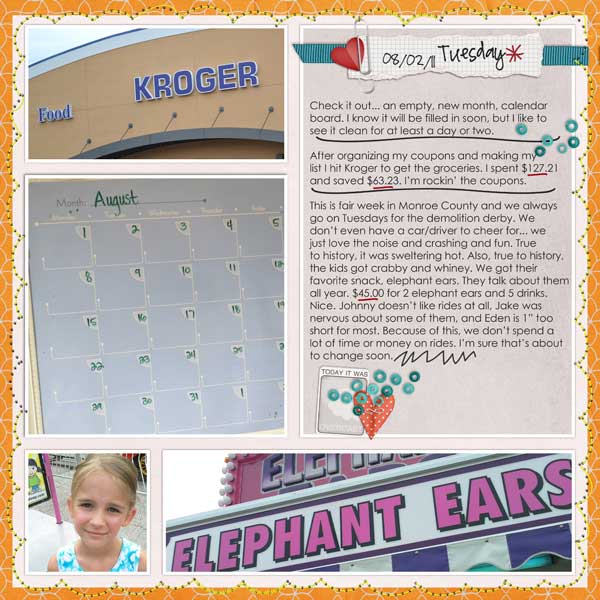 KROGER
Food
08/02/11 Tuesday*
Check it out... an empty, new month, calendar
board. I know it will be filled in soon, but I like to
see it clean for at least a day or two.
After organizing my coupons and making my
list I hit Kroger to get the groceries. I spent $127.21
and saved $63.23. I'm rockin' the coupons.
This is fair week in Monroe County and we always
go on Tuesdays for the demolition derby. We
don't even have a car/driver to cheer for... we
just love the noise and crashing and fun. True
to history, it was sweltering hot. Also, true to history,
the kids got crabby and whiney. We got their
favorite snack, elephant ears. They talk about them
all year. $45.00 for 2 elephant ears and 5 drinks.
Nice. Johnny doesn't like rides at all, Jake was
nervous about some of them, and Eden is 1" too
short for most. Because of this, we don't spend a
lot of time or money on rides. I'm sure that's about
to change soon.
TODAY IT WAS
OVERCAST
Month: August
Wednesday Thursday
1 2 3 4 5
8 9 10 11
15 16 17 18
22 23 24 25
29 30 31 1
ELEPHANT EARS